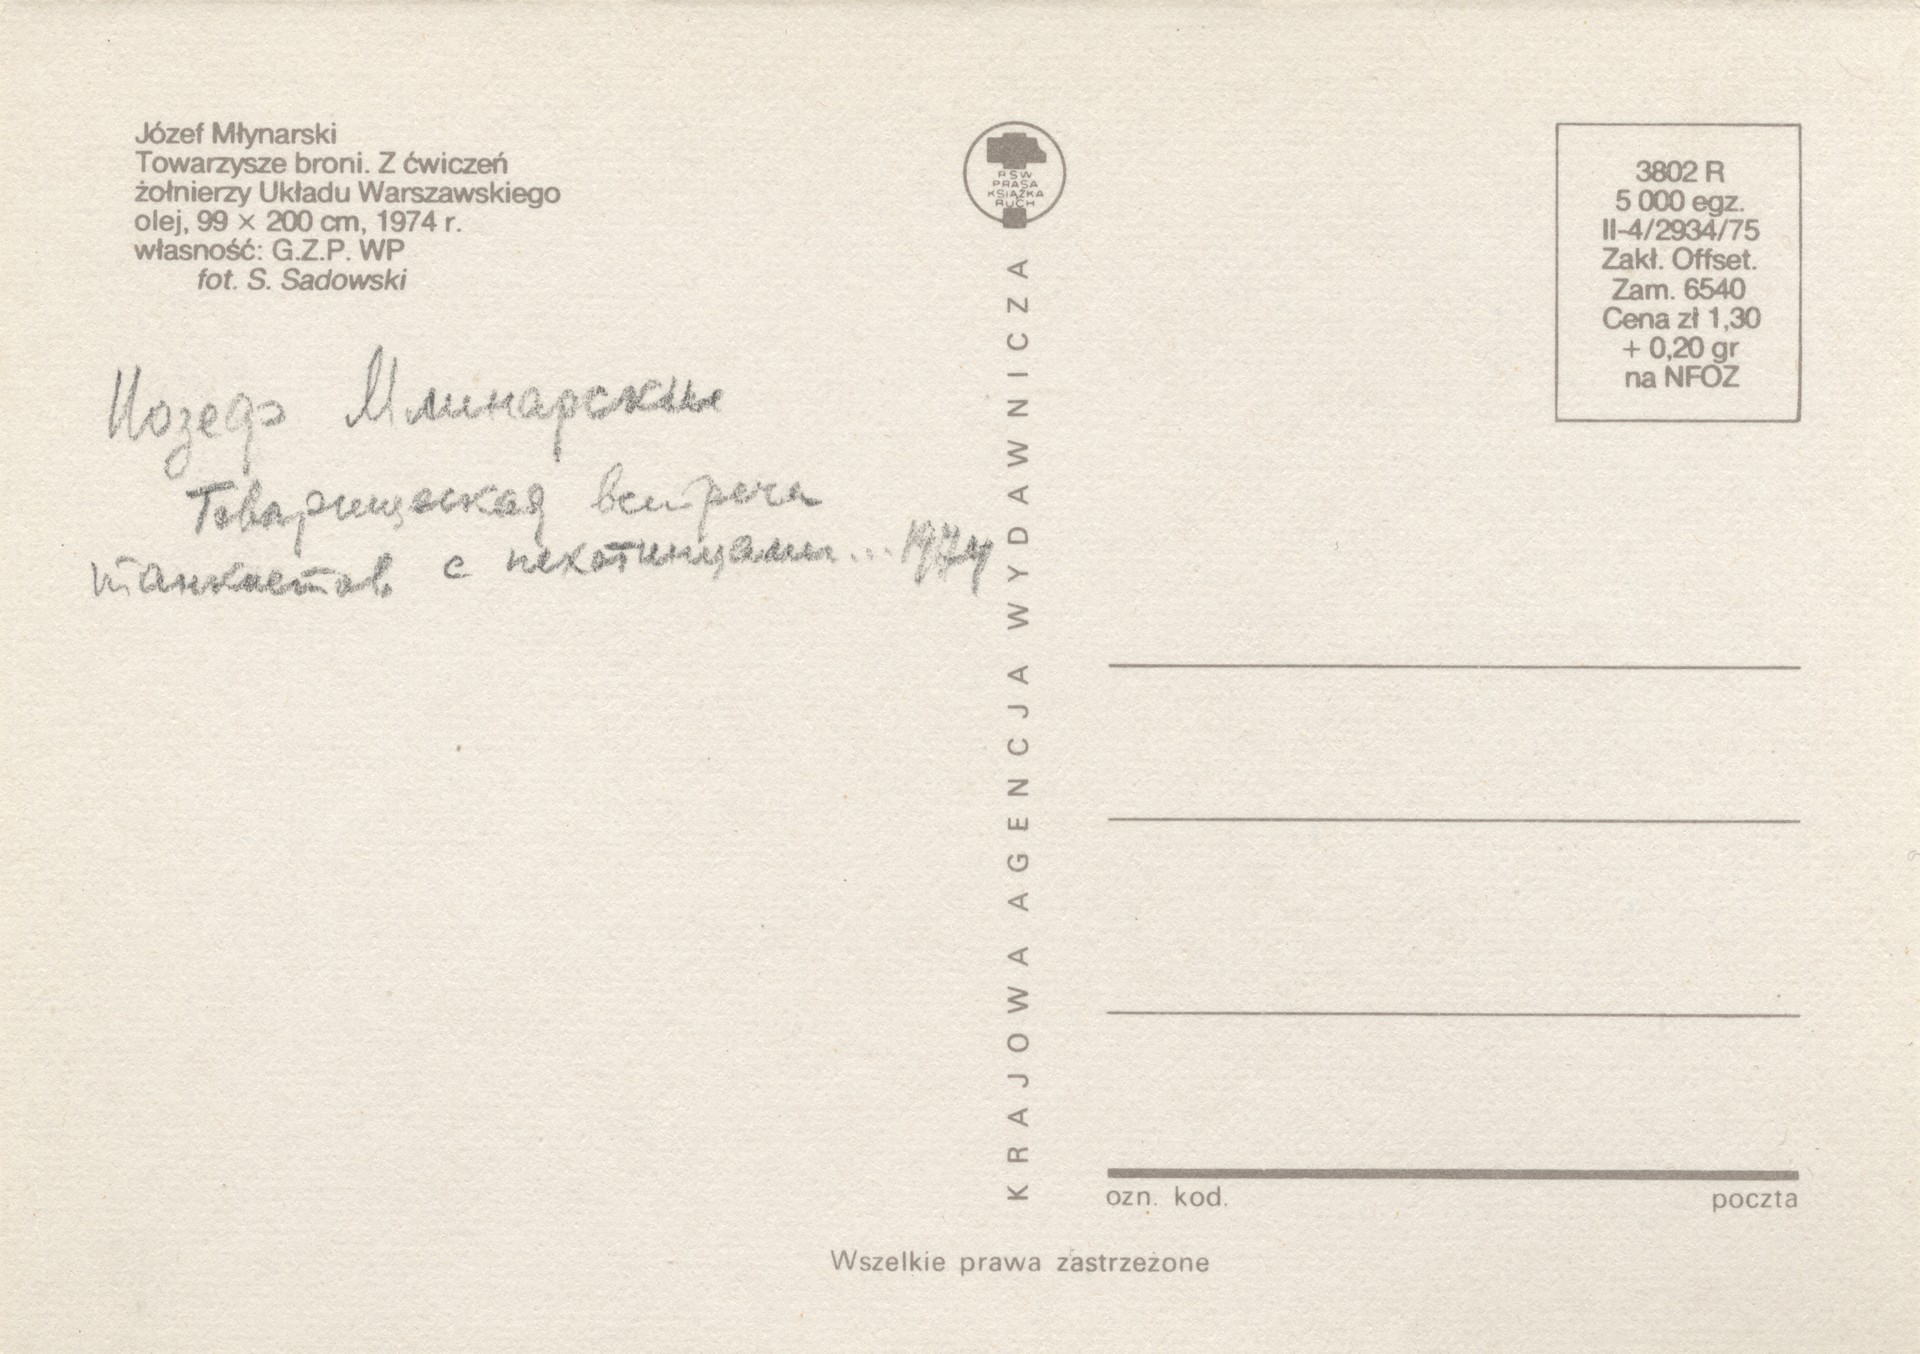 Józef Młynarski
Towarzysze broni. Z ćwiczeń
żołnierzy Układu Warszawskiego
olej, 99 × 200 cm, 1974 r.
własność: G.Z.P. WP
fot. S. Sadowski
Иозеф Млинарские
Товарищеская встреча
танкистов с пехотинцами... 1974
RSW
PRASA
KSIĄŻKA
RUCH
KRAJOWA AGENCJA WYDAWNICZA
3802 R
5 000 egz.
II-4/2934/75
Zakł. Offset.
Zam. 6540
Cena zł 1,30
+ 0,20 gr
na NFOZ
ozn. kod.
poczta
Wszelkie prawa zastrzeżone